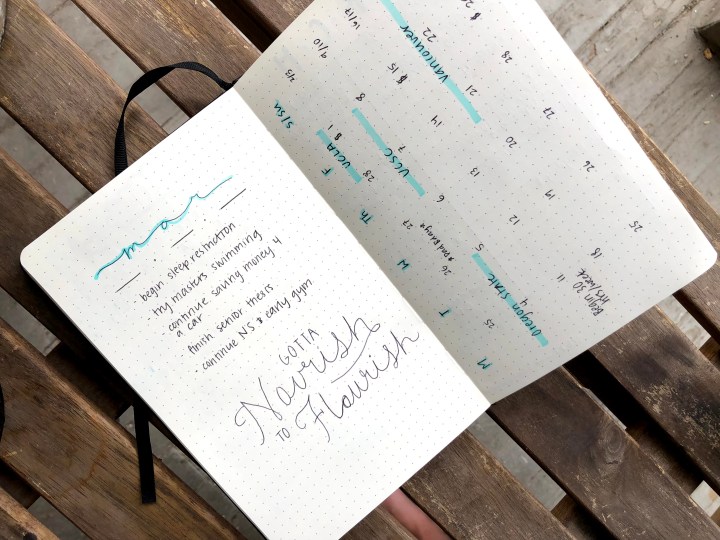 mar
begin sleep restriction
try masters swimming
continue saving money 4
a car
· finish senior thesis
· continue NS & early gym
GOTTA
Nourish
TO Flourish
M T W Th F S/Su
25 26 27 28 $ 1 2/3
UCLA
4 5 6 7 8 9/10
Oregon State UCSC
11 12 13 14 $ 15 16/17
Begin 30
hrs/week
18 19 20 21 22
Vancouver
25 26 27 28